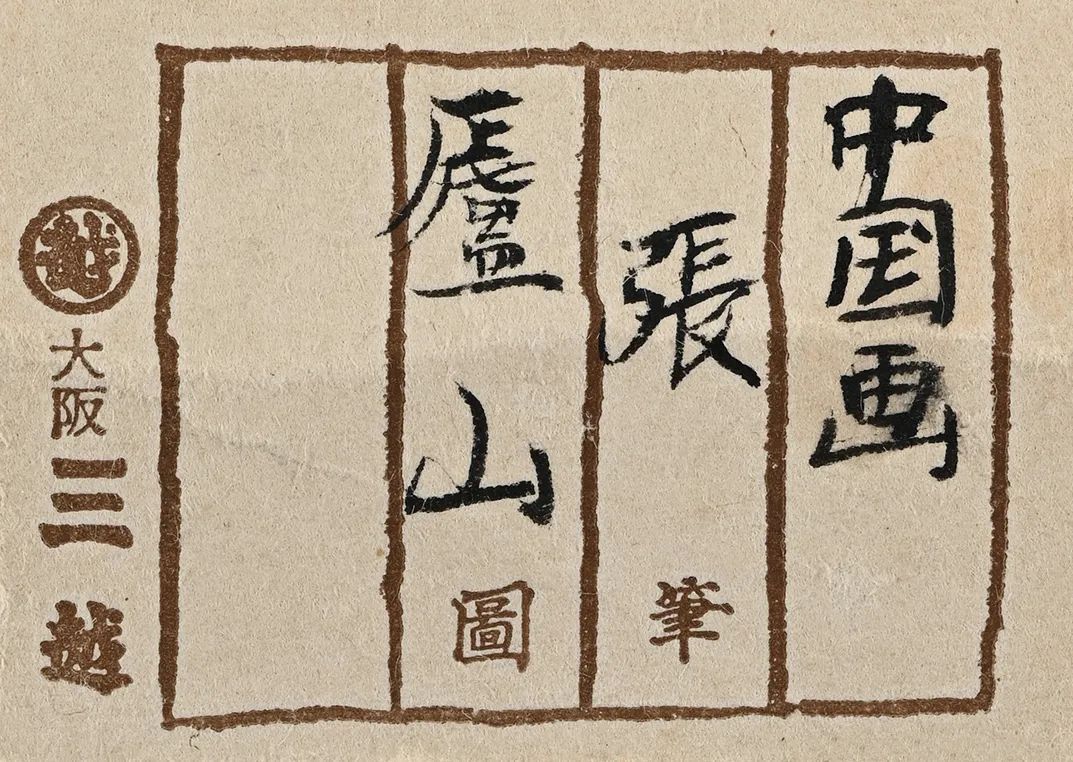 中国画
張筆
廬山圖
越
大阪三越